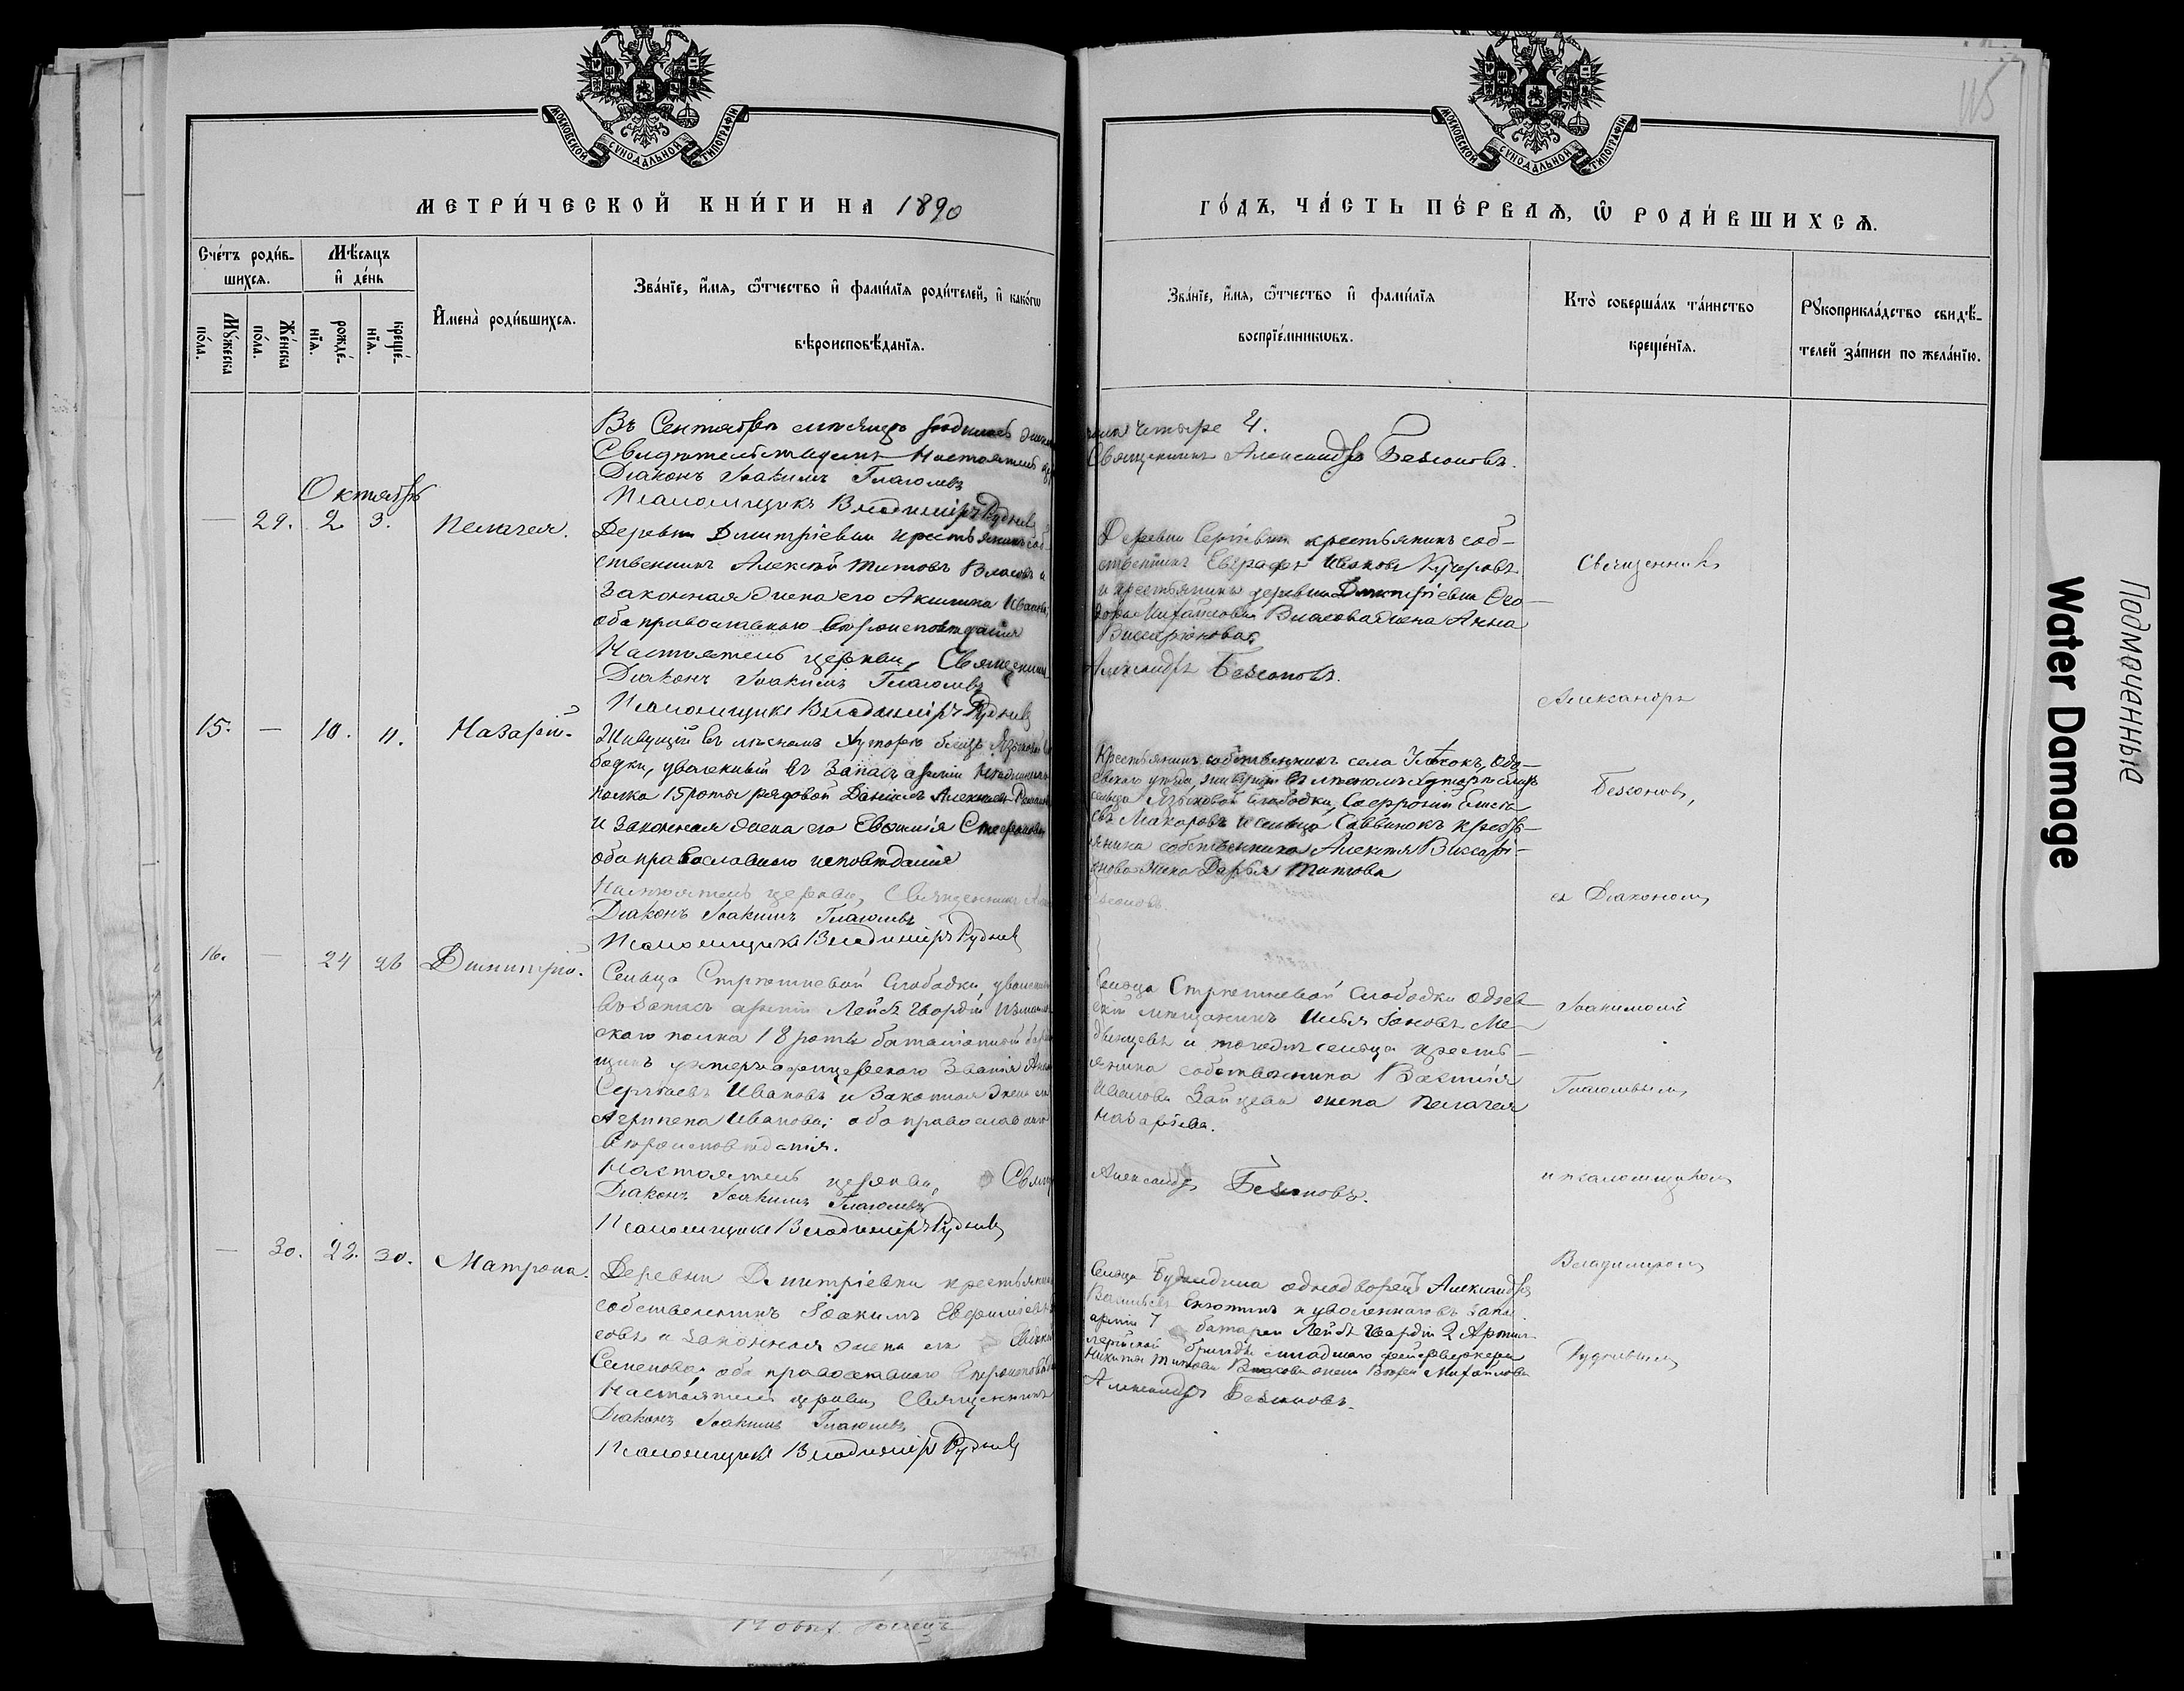 МОСКОВСКОЙ СѴНОДАЛЬНОЙ ТИПОГРАФІИ
МЕТРИ́ЧЕСКОЙ КНИ́ГИ НА 1890
Сче́тъ роди́в-
шихсѧ.
Мѣ́сѧцъ
и҆ де́нь
Мꙋ́жеска
по́ла.
Же́нска
по́ла.
рожде́-
нїѧ.
креще́-
нїѧ.
И҆мена̀ роди́вшихсѧ.
Зва́нїе, и҆́мѧ, ѻ҆́тчество и҆ фами́лїѧ роди́телей, и҆ како́гѡ
вѣроисповѣ́данїѧ.
Въ Сентябрѣ мѣсяцѣ родилось
Свидѣтельствуемъ Настоятель
Діаконъ Іоакимъ Глаголевъ
Псаломщикъ Владиміръ Рудневъ
Октябрь
— 29. 2 3. Пелагея.
Деревни Дмитріевки крестьянинъ соб-
ственникъ Алексѣй Титовъ Власовъ и
законная жена его Акилина Иванова,
оба православнаго вѣроисповѣданія
Настоятель церкви, Священникъ
Діаконъ Іоакимъ Глаголевъ
Псаломщикъ Владиміръ Рудневъ
15. — 10. 11. Назарій.
Живущій въ лѣсномъ хуторѣ близь Языковой
бодки, уволеный въ запасъ арміи
полка 15 роты рядовой Даніилъ Алексѣевъ
и законная жена его Евѳимія Стефанова
оба православнаго исповѣданія
Настоятель церкви, Священникъ
Діаконъ Іоакимъ Глаголевъ
Псаломщикъ Владиміръ Рудневъ
16. — 24 26 Димитрій.
Сельца Стрѣшневой Слободки, уволенный
въ запасъ арміи Лейбъ Гвардіи Измайлов
скаго полка 18 роты баталіонный
щикъ унтеръ-офицерскаго званія
Сергѣевъ Ивановъ и законная жена его
Агрипена Иванова; оба православнаго
вѣроисповѣданія.
Настоятель церкви, Священ
Діаконъ Іоакимъ Глаголевъ
Псаломщикъ Владиміръ Рудневъ
— 30. 22. 30. Матрона.
Деревни Дмитріевки крестьянинъ
собственникъ Іоакимъ Евфиміевъ
совъ и законная жена его
Семенова; оба православнаго вѣроисповѣда
Настоятель церкви, Священникъ
Діаконъ Іоакимъ Глаголевъ
Псаломщикъ Владиміръ Рудневъ
МОСКОВСКОЙ СѴНОДАЛЬНОЙ ТИПОГРАФІИ
115
ГО́ДЪ, ЧА́СТЬ ПЕ́РВАѦ, Ѽ РОДИ́ВШИХСѦ.
Зва́нїе, и҆́мѧ, ѻ҆́тчество и҆ фами́лїѧ
воспрїе́мникѡвъ.
Кто̀ соверша́лъ та́инство
креще́нїѧ.
Рꙋкоприкла́дство свидѣ́-
телей за́писи по жела́нїю.
пола четыре 4.
Священникъ Александръ Безсоновъ.
Деревни Сергіевки крестьянинъ соб-
ственникъ Евграфъ Ивановъ Кучеровъ
и крестьянина деревни Дмитріевки Ѳео-
дора Михайлова Власова жена Анна
Виссаріонова.
Александръ Безсоновъ.
Крестьянинъ собственникъ села Одо-
евскаго уѣзда, живущій въ лѣсномъ хуторѣ близь
сельца Языковой Слободки, Софроній Елисѣ
евъ Макаровъ и сельца Саввинокъ кресть-
янина собственника Алексѣя Виссарі-
онова жена Дарья Титова
Безсоновъ.
Сельца Стрѣшневой Слободки одоев-
скій мѣщанинъ Илья Іоновъ Ме-
двинцевъ и тогоже сельца кресть-
янина собственника Василія
Иванова Зайцева жена Пелагея
Назарьева.
Александръ Безсоновъ.
Сельца однодворецъ Александръ
Васильевъ и уволеннаго въ запа
арміи 7 батареи Лейбъ Гвардіи 2 Артил
лерійской бригады младшаго фейерверкера
Никиты Титова Власова жена Михайлова
Александръ Безсоновъ.
Священникъ
Александръ
Безсоновъ,
съ Діакономъ
Іоакимомъ
Глаголевымъ
и псаломщикомъ
Владимиромъ
Рудневымъ
Подмоченные
Water Damage